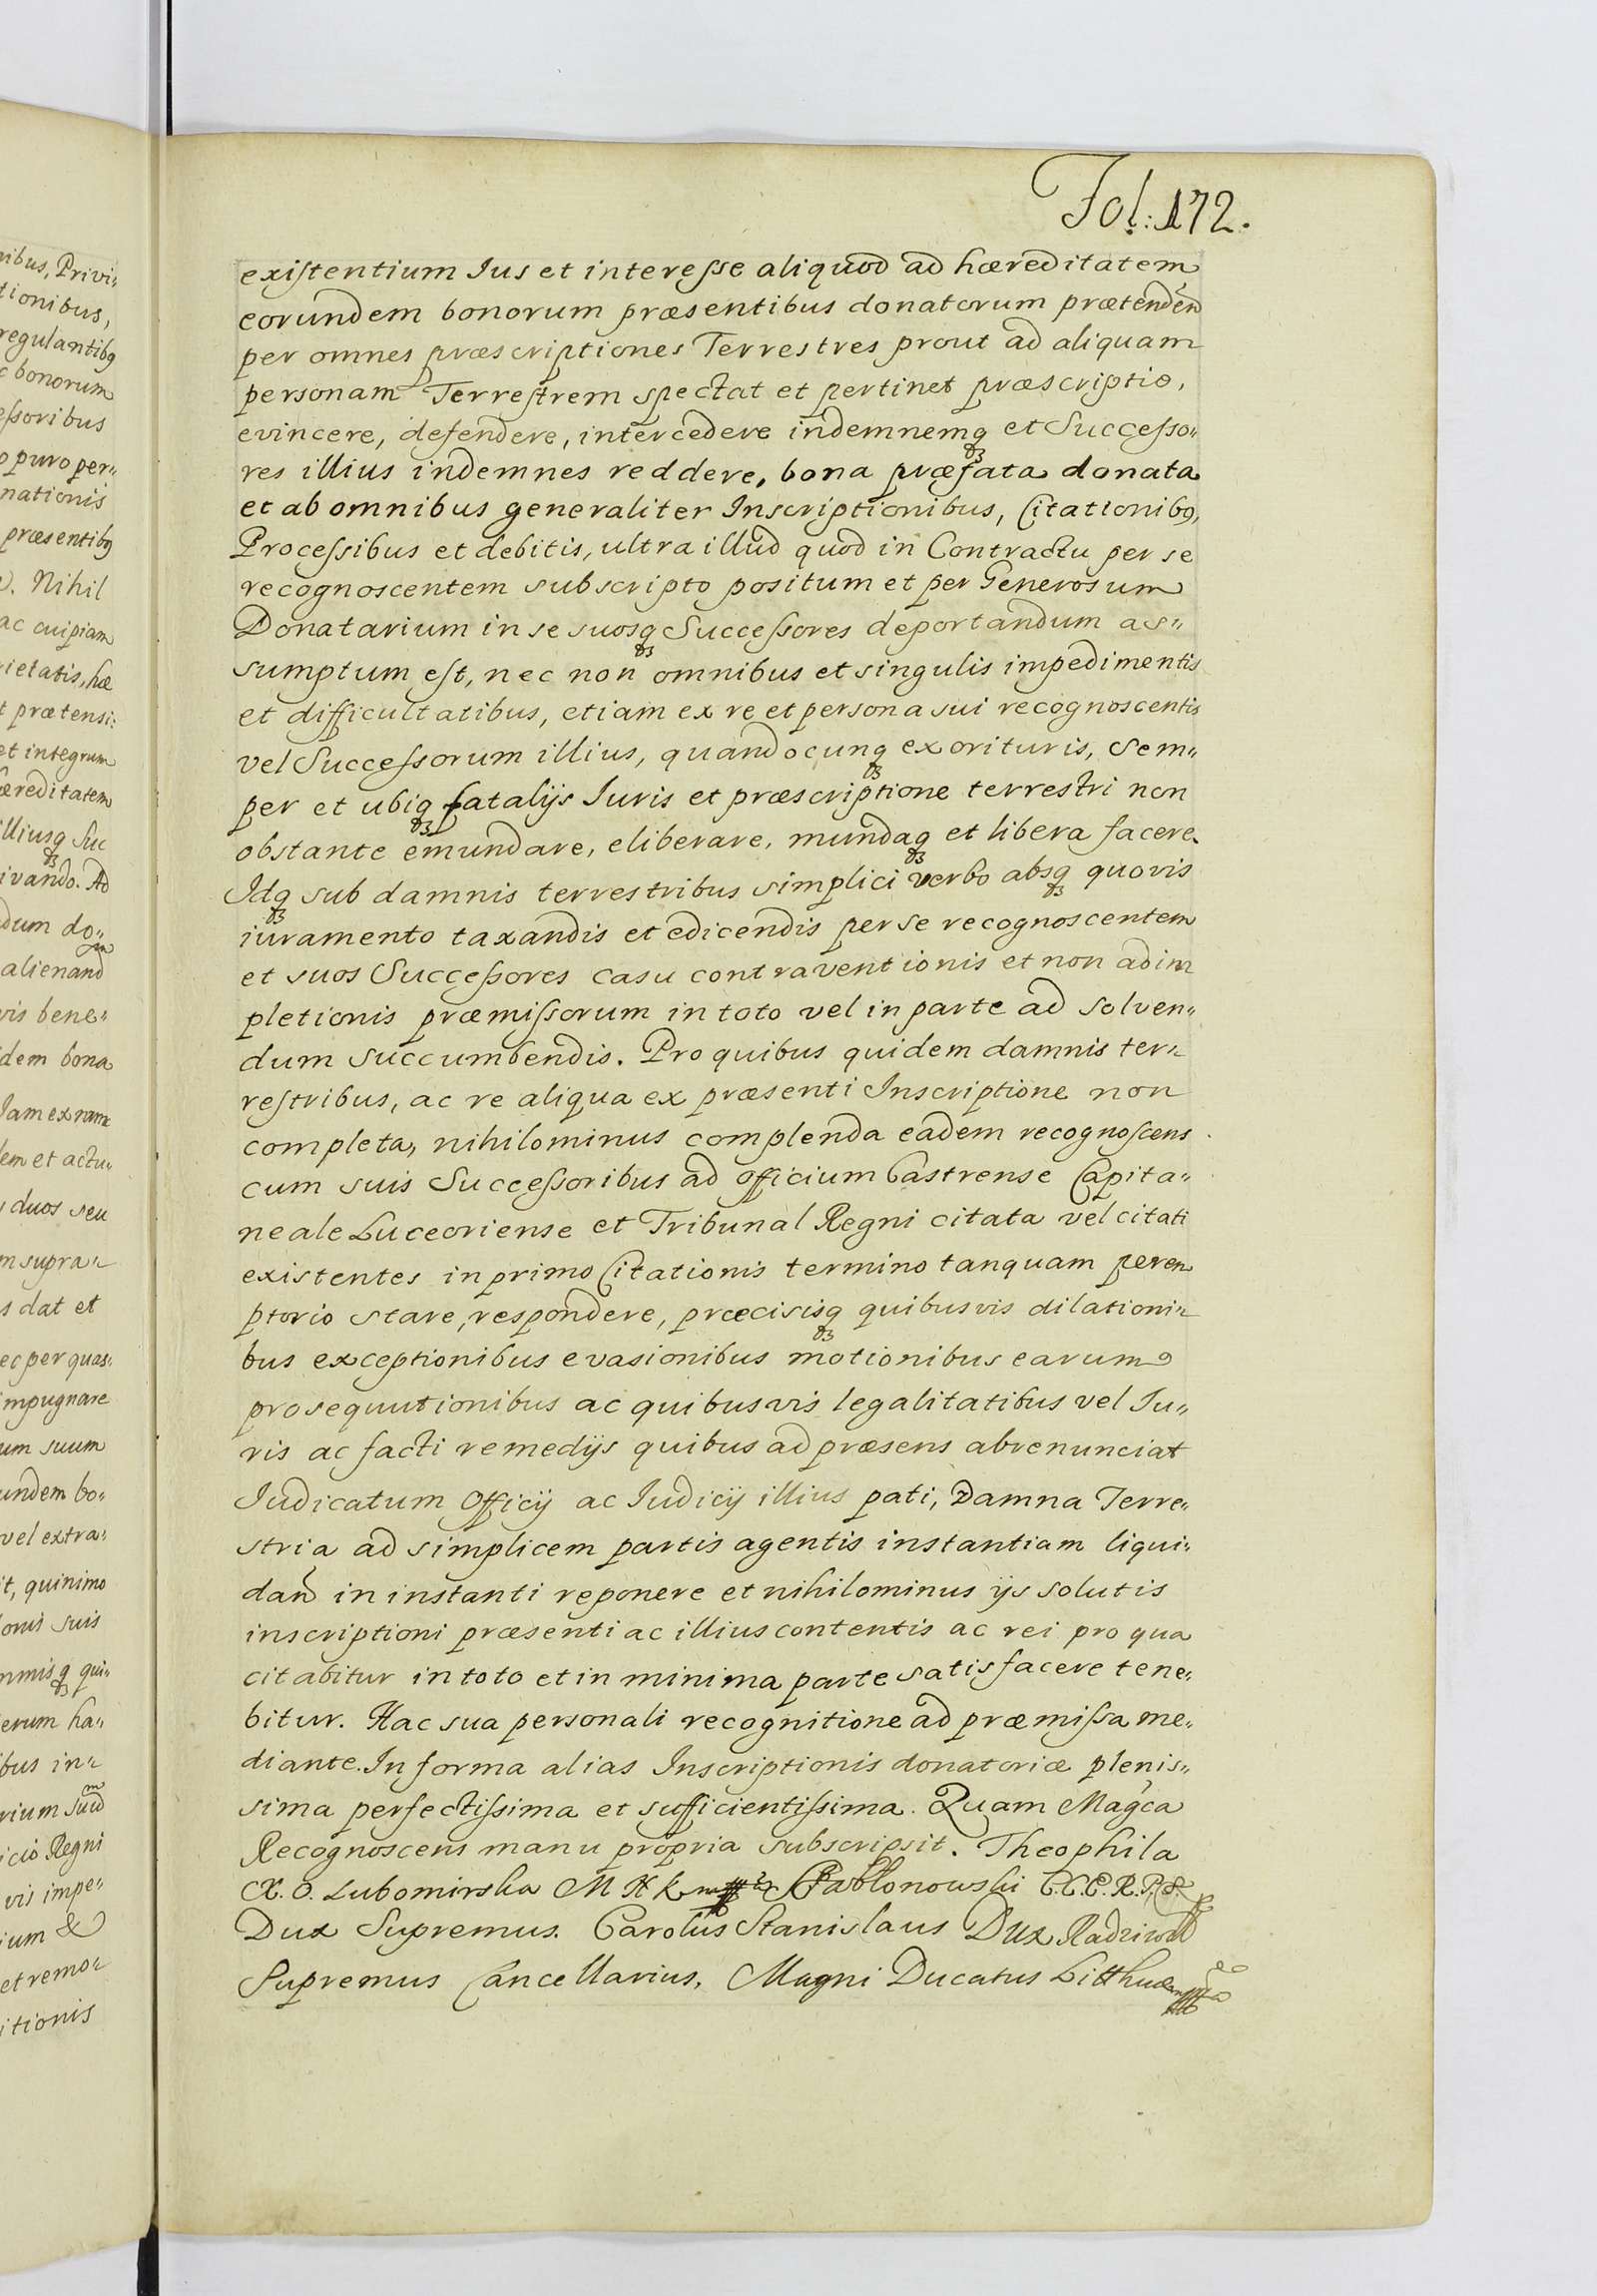 Fol: 172.
existentium Ius et interesse aliquod ad hæreditatem
eorundem bonorum præsentibus donatorum prætenden
per omnes præscriptiones Terrestres prout ad aliquam
personam Terrestrem spectat et pertinet præscriptio,
evincere, defendere, intercedere indemnemq3 et Successo„
res illius indemnes reddere, bona præfata donata
et ab omnibus generaliter Inscriptionibus, Citationib9,
Processibus et debitis, ultra illud quod in Contractu per se
recognoscentem subscripto positum et per Generosum
Donatarium in se suosq3 Successores deportandum as„
sumptum est, nec non omnibus et singulis impedimentis
et difficultatibus, etiam ex re et persona sui recognoscentis
vel Successorum illius, quandocunq3 exorituris, Sem„
per et ubiq3 fatalijs Iuris et præscriptione terrestri non
obstante emundare, eliberare, mundaq3 et libera facere.
Idq3 sub damnis terrestribus simplici verbo absq3 quovis
iuramento taxandis et edicendis per se recognoscentem
et suos Successores casu contraventionis et non adim
pletionis præmissorum in toto vel in parte ad solven„
dum succumbendis. Pro quibus quidem damnis ter„
restribus, ac re aliqua ex præsenti Inscriptione non
completa, nihilominus complenda eadem recognoscens
cum suis Successoribus ad officium Castrense Capita„
neale Luceoriense et Tribunal Regni citata vel citati
existentes in primo Citationis termino tanquam perem
ptorio stare, respondere, præcisisq3 quibusvis dilationi„
bus exceptionibus evasionibus motionibus earum9
prosequutionibus ac quibusvis legalitatibus vel Iu„
ris ac facti remedijs quibus ad præsens abrenunciat
Iudicatum Officij ac Iudicij illius pati, Damna Terre„
stria ad simplicem partis agentis instantiam liqui„
dan in instanti reponere et nihilominus ijs solutis
inscriptioni præsenti ac illius contentis ac rei pro qua
citabitur in toto et in minima parte satisfacere tene„
bitur. Hac sua personali recognitione ad præmissa me„
diante. In forma alias Inscriptionis donatoriæ plenis„
sima perfectissima et sufficientissima. Quam Magca
Recognoscens manu propria subscripsit. Theophila
X. O. Lubomirska M K K Jabłonowski C. C. E. R. P.
Dux Supremus. Carolus Stanislaus Dux Radziwił
Supremus Cancellarius, Magni Ducatus Litthuaniæ